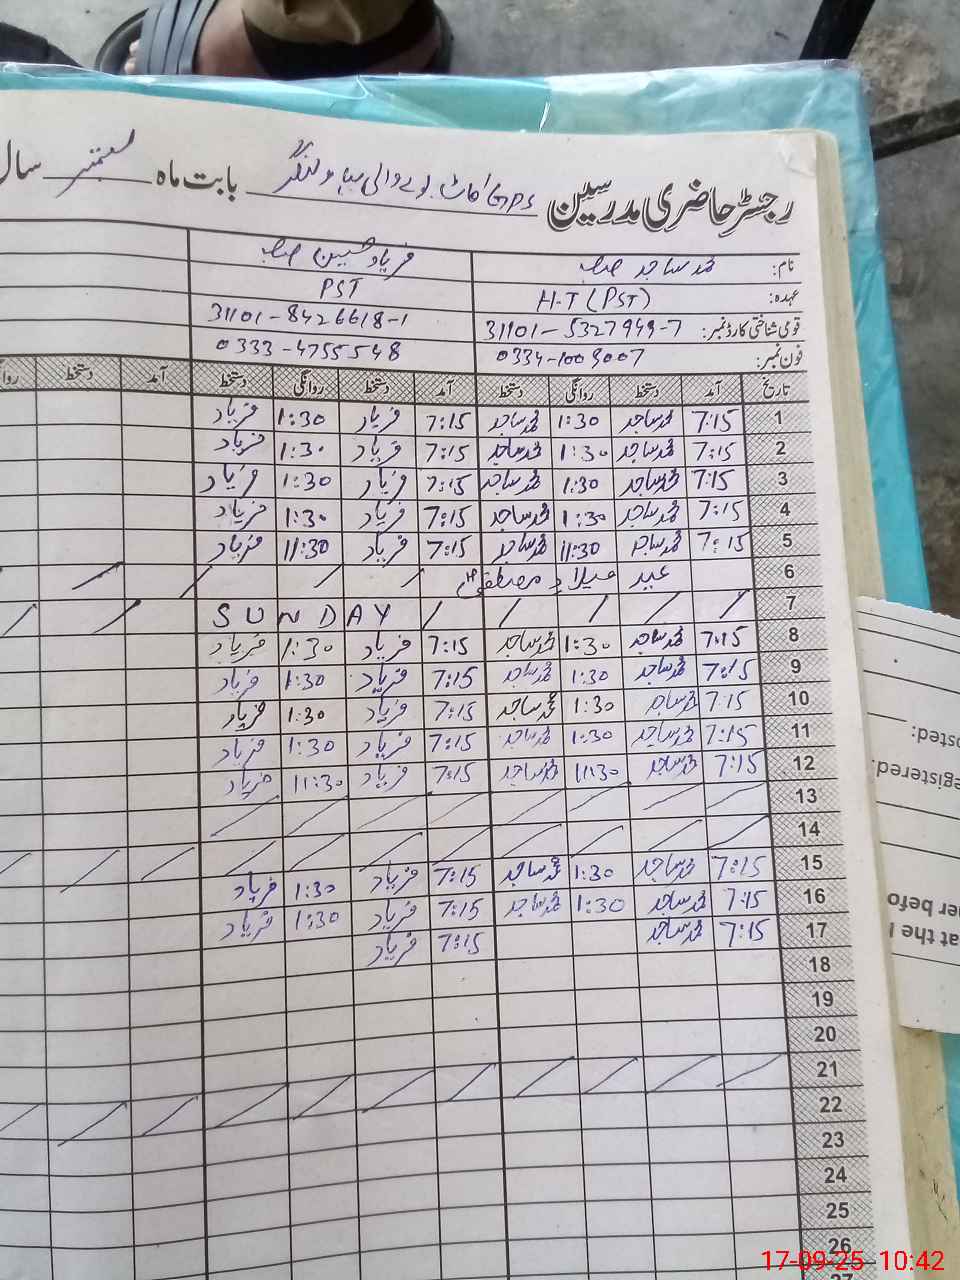 رجسٹر حاضری مدرسین GPS بابت ماہ ستمبر سال
نام: محمد ساجد صاحب فریاد حسین صاحب
عہدہ: H-T (PST) PST
قومی شناختی کارڈ نمبر: 31101-5327949-7 31101-8426618-1
فون نمبر: 0334-1009007 0333-4755548
تاریخ آمد دستخط روانگی دستخط آمد دستخط روانگی دستخط آمد دستخط
1 7:15 محمد ساجد 1:30 محمد ساجد 7:15 فریاد 1:30 فریاد
2 7:15 محمد ساجد 1:30 محمد ساجد 7:15 فریاد 1:30 فریاد
3 7:15 محمد ساجد 1:30 محمد ساجد 7:15 فریاد 1:30 فریاد
4 7:15 محمد ساجد 1:30 محمد ساجد 7:15 فریاد 1:30 فریاد
5 7:15 محمد ساجد 11:30 محمد ساجد 7:15 فریاد 11:30 فریاد
6 عید میلاد مصطفیٰ
7 SUNDAY
8 7:15 محمد ساجد 1:30 محمد ساجد 7:15 فریاد 1:30 فریاد
9 7:15 محمد ساجد 1:30 محمد ساجد 7:15 فریاد 1:30 فریاد
10 7:15 محمد ساجد 1:30 محمد ساجد 7:15 فریاد 1:30 فریاد
11 7:15 محمد ساجد 1:30 محمد ساجد 7:15 فریاد 1:30 فریاد
12 7:15 محمد ساجد 11:30 محمد ساجد 7:15 فریاد 11:30 فریاد
13
14
15 7:15 محمد ساجد 1:30 محمد ساجد 7:15 فریاد 1:30 فریاد
16 7:15 محمد ساجد 1:30 محمد ساجد 7:15 فریاد 1:30 فریاد
17 7:15 محمد ساجد 7:15 فریاد
18
19
20
21
22
23
24
25
26
27
osted:
egistered.
er befo
at the
17-09-25 10:42